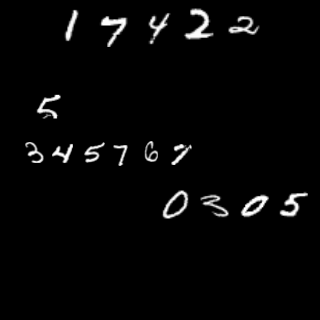 17422
5
345767
0305